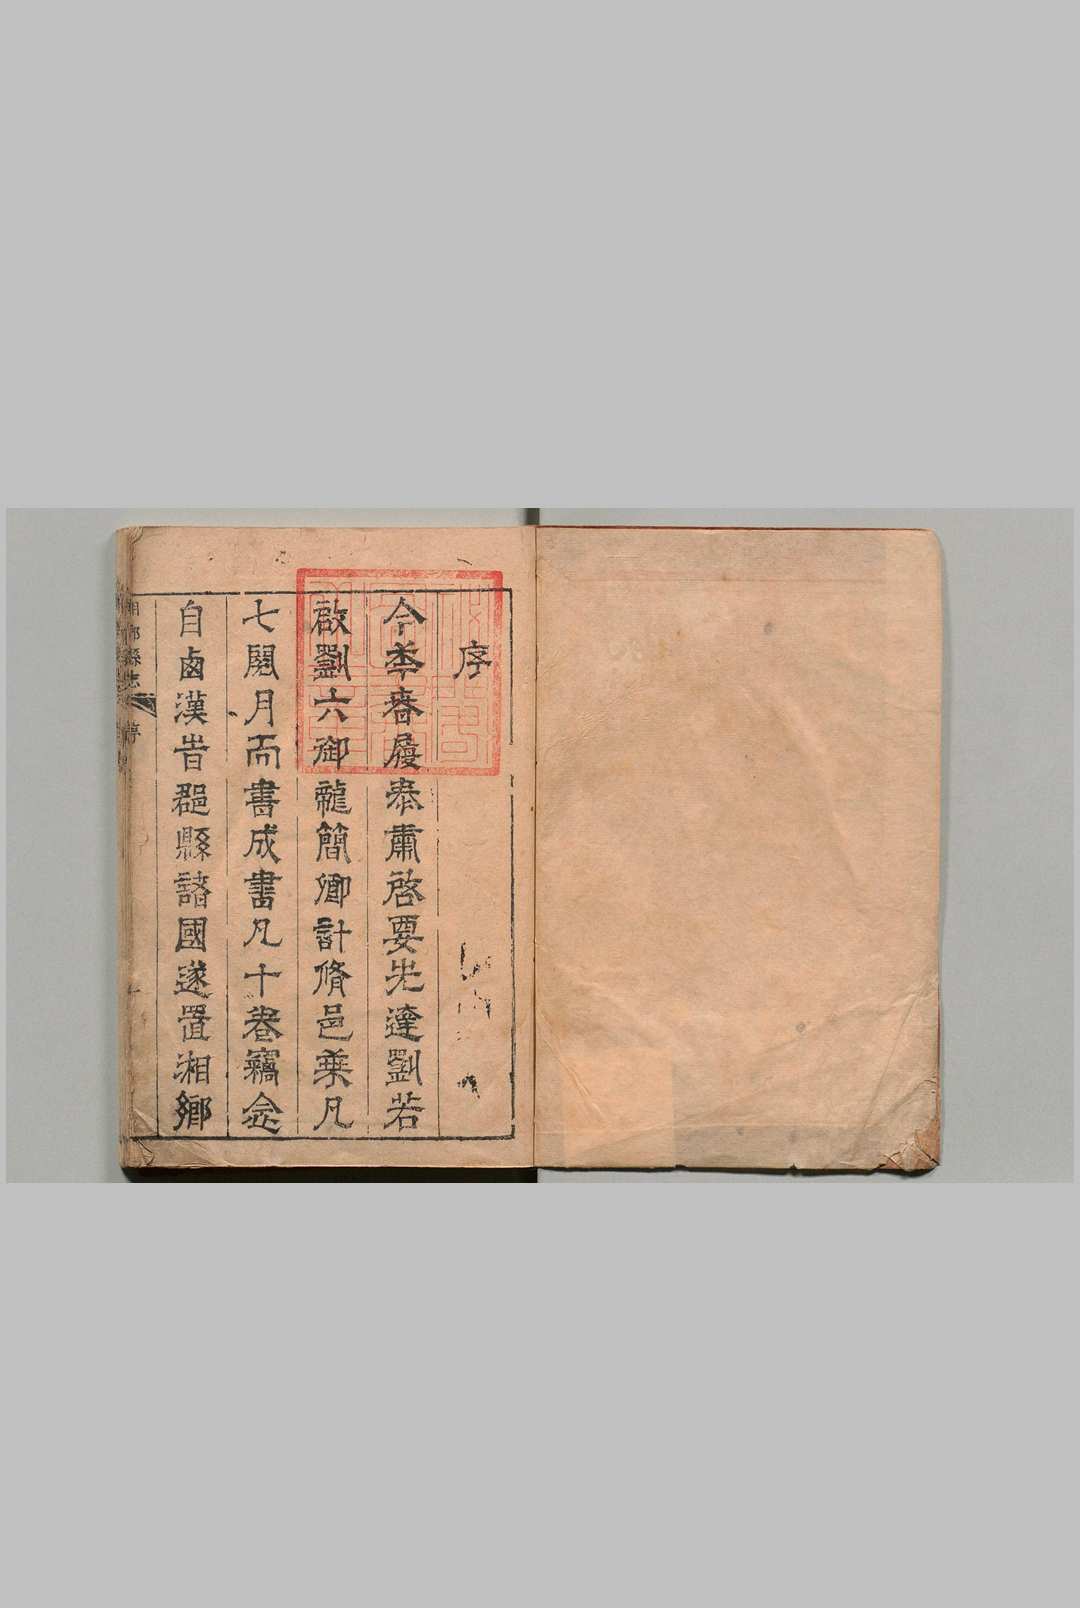 序
今秊旾履泰肅啓要先達劉若
啟劉六御龍簡卿計脩邑乗凡
七閱月而書成書凡十卷竊念
自鹵漢旹郡縣諸國遂置湘鄉
湘鄉縣志 序 一